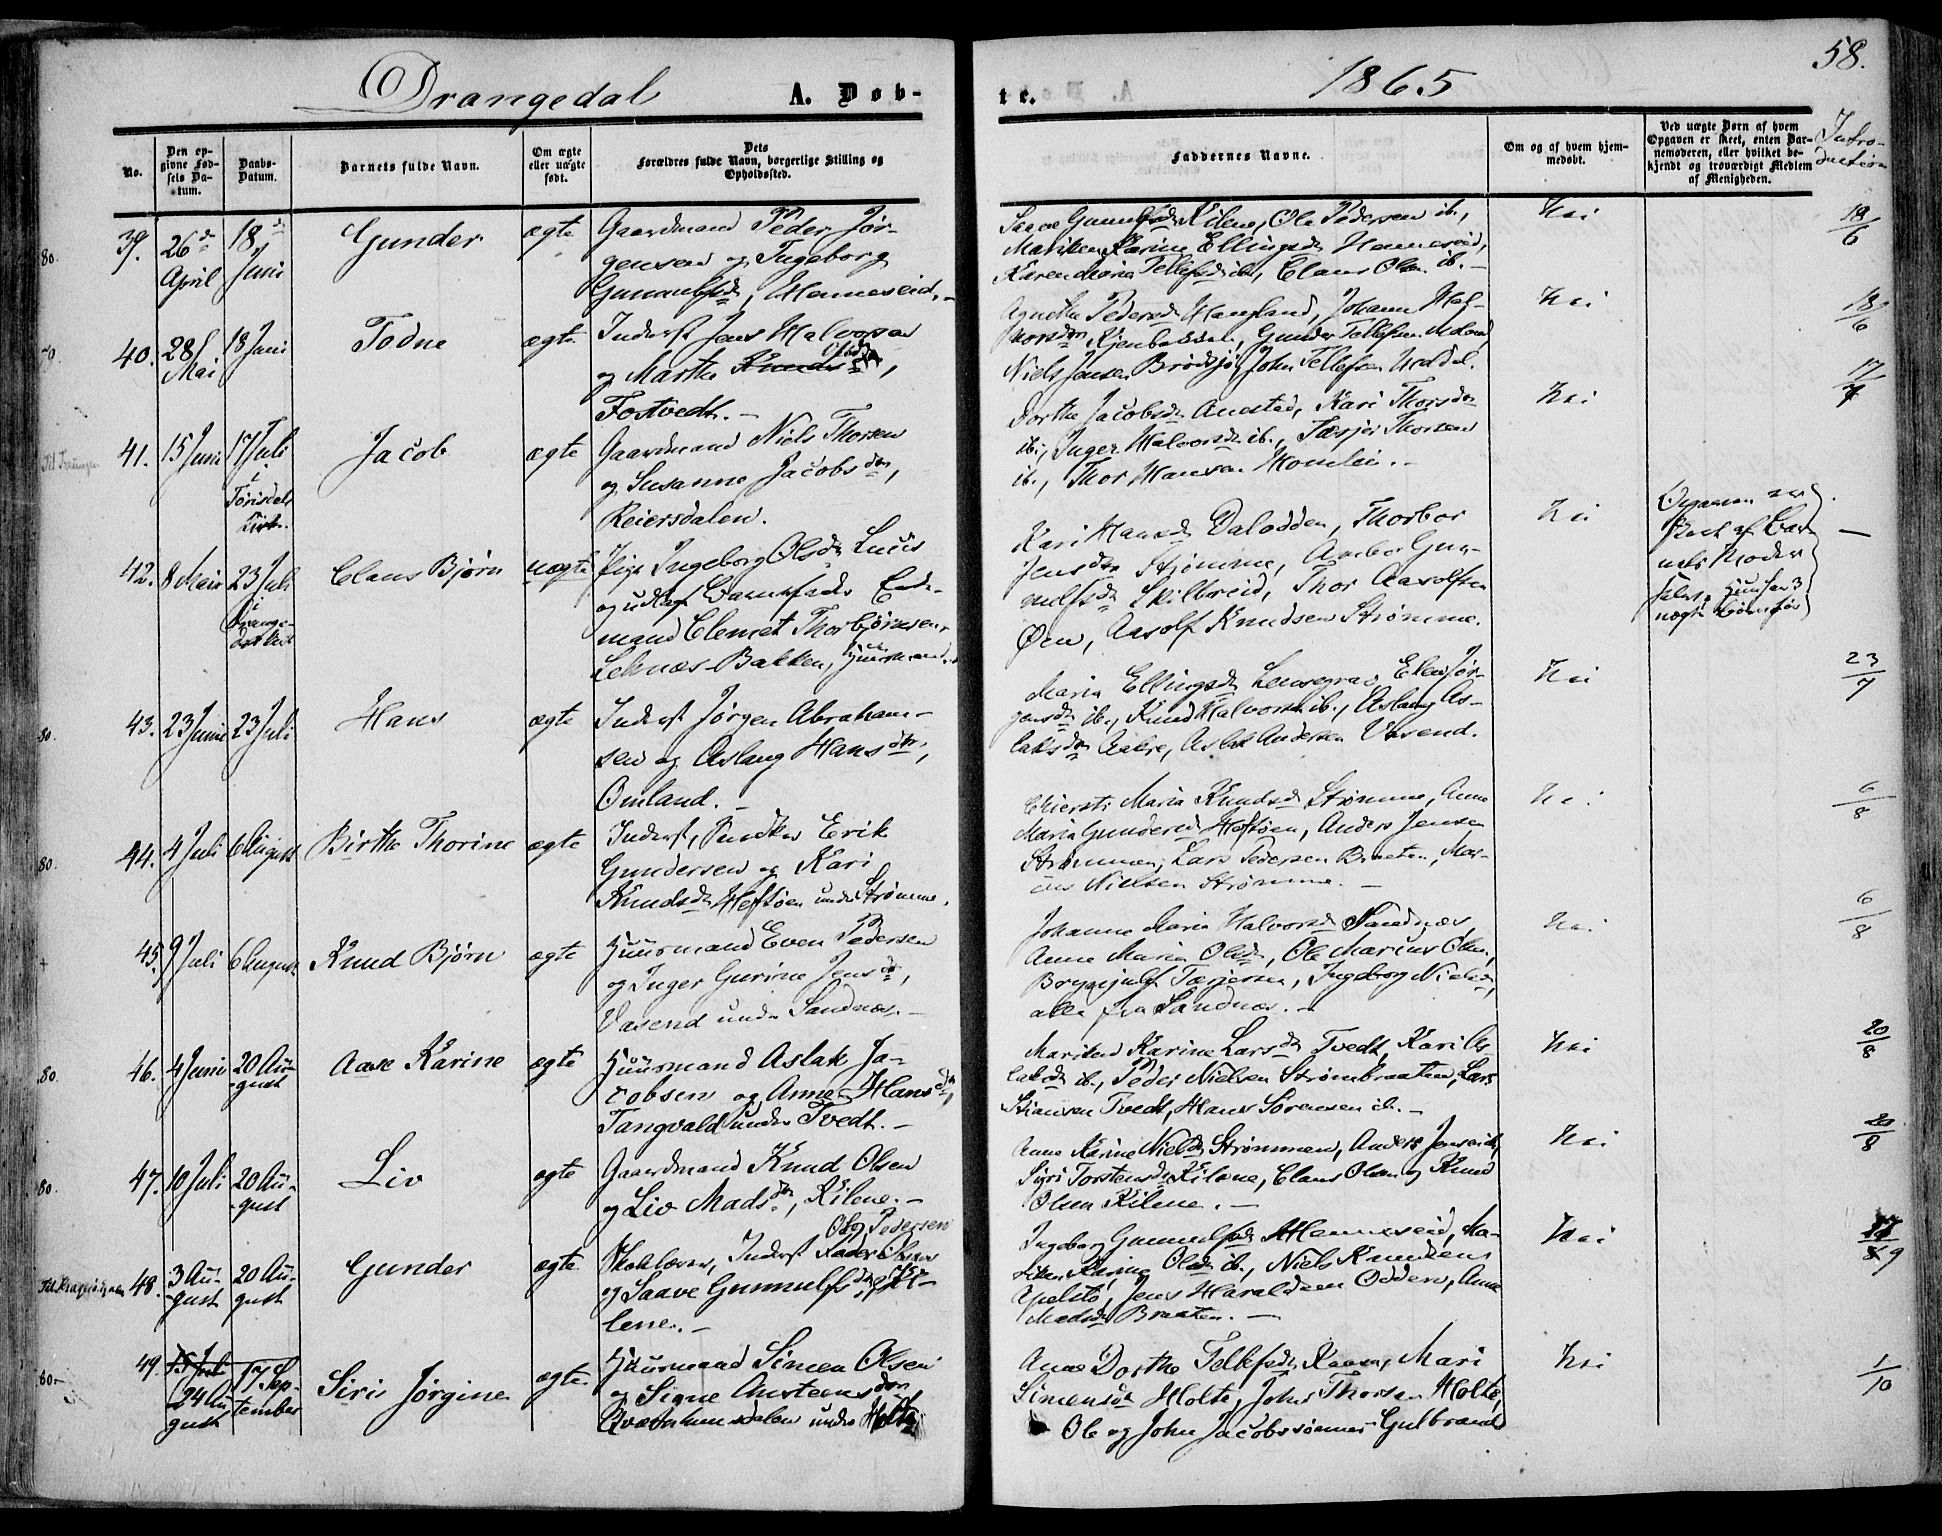 58.
Drangedal
A. Døb-
te.
1865
No.
Den op-
givne Fød-
sels Da-
tum.
Daabs-
Datum.
Barnets fulde Navn.
Om ægte
eller uægte
født.
Dets
Forældres fulde Navn, borgerlige Stilling og
Opholdssted.
Faddernes Navne.
Om og af hvem hjem-
medøbt.
Ved uægte Børn af hvem
Opgaven er skeet, enten Bar-
nemoderen, eller hvilket be-
kjendt og troværdigt Medlem
af Menigheden.
Intro-
duction
80.
39.
26de
April
18de
Juni
Gunder
ægte
Gaardmand Peder Jør-
gensen og Ingeborg
Gunnulfsdr, Henneseid.-
Saave Gunnulfsdr Kilene, Ole Pedersen ib.,
Mariken Karine Ellingsdr Henneseid,
Karen Maria Tellefsdr ib., Claus Olsen ib.-
Nei
18/6
40.
28
Mai
18 Juni
Todne
ægte
Inderst Jens Halvorsen
og Marthe
Fostvedt.-
Agnethe Pedersdr Haugland, Johanne Hal-
vorsdr Gunder Tellefsen
Niels Jensen John Tellefsen
Nei
18/6
41.
15 Juni
17 Juli
i
Tørisdals
Kirke.
Jacob
ægte
Gaardmand Niels Thorsen
og Susanne Jacobsdr,
Reiersdalen.
Dorthe Jacobsdr Kari Thorsdr
ib., Inger Halvorsdr ib., Tarjei Thorsen
ib., Thor Hansen
Nei
17/7
42.
8 Mai
23 Juli
i
Drange-
dal Kirke
Claus Bjørn
uægte
Pige Ingeborg Olsdr
og udlagt Barnefader Enke-
mand Clemet Thorbjørnsen
Bakken, Huusmand.
Kari Hansdr Dalodden, Thorbor
Jensdr Strømme, Gun-
nulfsdr Thor Aasolfsen
Øen, Aasolf Knudsen Strømme.
Nei
Opgaven er
skeet af Bar-
nets Moder
selv. Hun har 3
uægte Børn før
-
80.
43.
23 Juni
23 Juli
Hans
ægte
Inderst Jørgen Abraham-
sen og Aslaug Hansdr,
Omland.-
Maria Ellingsdr Ellen Jør-
gensdr ib., Knud Halvorsen ib., Aslaug As-
laksdr Aslak Andersen Vasend.
Nei
23/7
80.
44.
4 Juli
6 August
Birthe Thorine
ægte
Inderst, Snedker Erik
Gundersen og Kari
Knudsdr Heftøen under Strømme.
Maria Knudsdr Strømme, Anne
Maria Gundersdr Heftøen, Anders Jensen
Strømmen, Lars Pedersen Braaten, Mar-
Nielsen Strømme.-
Nei
6/8
45.
9 Juli
6 August
Knud Bjørn
ægte
Huusmand Even Pedersen
og Inger Gurine Jensdr,
Vasend under Sandnæs.-
Johanne Maria Halvorsdr Sandnæs,
Anne Maria Olsdr, Ole Marius Olsen,
Brynjulf Tarjersen, Ingeborg Nielsdr,
alle fra Sandnæs.-
Nei
6/8
80.
46.
4 Juni
20 Au-
gust
Aase Karine
ægte
Huusmand Aslak Ja-
cobsen og Anne Hansdr,
Tangvald under Tvedt.-
Mariken Karine Larsdr Tvedt, Kari As-
laksdr ib., Peder Nielsen Strømbraaten, Lars
Stiansen Tvedt, Hans Sørensen ib.-
Nei
20/8
80.
47.
10 Juli
20 Au-
gust
Liv
ægte
Gaardmand Knud Olsen
og Liv Madsdr, Kilene.-
Anne Karine Nielsdr Strømmen, Anders Jensen ib.,
Siri Torstensdr Kilene, Claus Olsen og Knud
Olsen Kilene.-
Nei
20/8
48.
3 Au-
gust
20 Au-
gust
Gunder
ægte
Ole Pedersen
Skolelærer, Inderst
og Saave Gunnulfsdr, Ki-
lene.-
Ingeborg Gunnulfsdr Henneseid, Ma-
riken Karine Olsdr ib., Niels Knudsen
Apelstø, Jens Haraldsen Odden, Anne
Madsdr Braaten.-
Nei
80-
49.
15 Juli
24 Au-
gust
17 Sep-
tember
Siri Jørgine
ægte
Huusmand Simen Olsen
og Signe Austensdr
under Holte
Anne Dorthe Tellefsdr Mari
Simensdr Holte, John Thorsen Holte,
Ole og John Jacobssønner Gulbrands
Nei
1/10